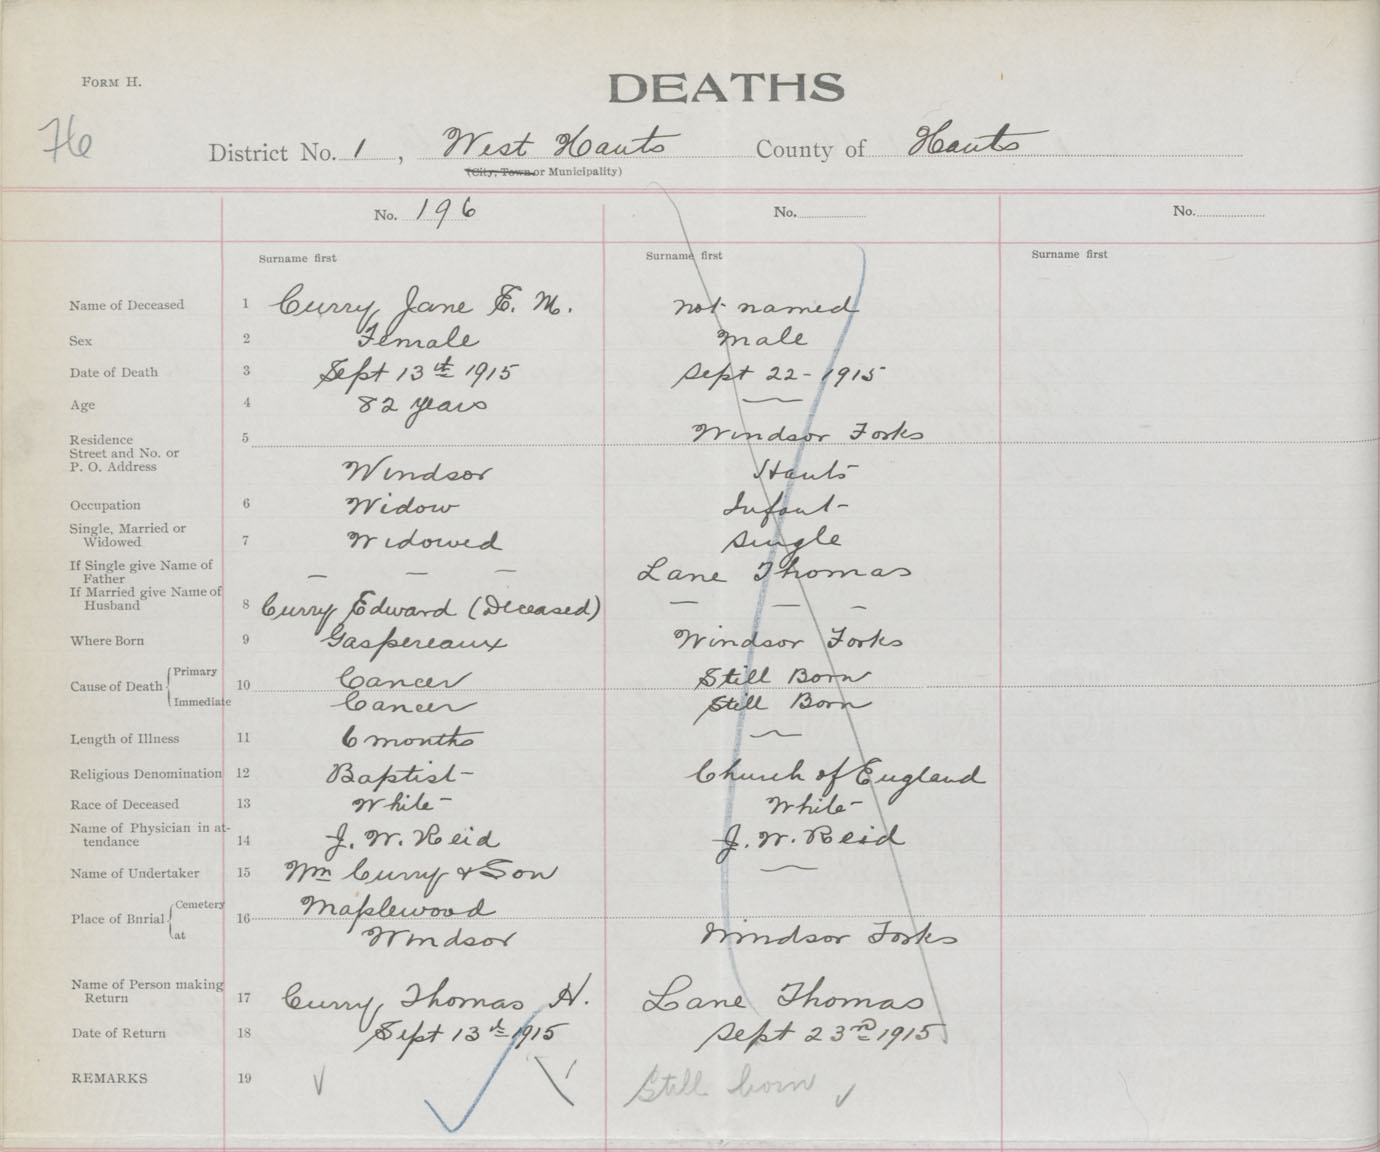 FORM H.
DEATHS
76
District No. 1 , West Hants County of Hants
(City, Town or Municipality)
No. 196 No. No.
Surname first Surname first Surname first
Name of Deceased 1 Curry Jane E. M. not named
Sex 2 Female Male
Date of Death 3 Sept 13th 1915 Sept 22 - 1915
Age 4 82 years —
Residence 5 Windsor Forks
Street and No. or
P. O. Address Windsor Hants
Occupation 6 Widow Infant
Single, Married or
Widowed 7 Widowed Single
If Single give Name of
Father — — — Lane Thomas
If Married give Name of
Husband 8 Curry Edward (Deceased) — — —
Where Born 9 Gaspereaux Windsor Forks
Cause of Death { Primary 10 Cancer Still Born
Immediate Cancer Still Born
Length of Illness 11 6 months —
Religious Denomination 12 Baptist Church of England
Race of Deceased 13 White White
Name of Physician in at-
tendance 14 J. W. Reid J. W. Reid
Name of Undertaker 15 Wm Curry & Son —
Place of Bnrial { Cemetery 16 Maplewood
at Windsor Windsor Forks
Name of Person making
Return 17 Curry Thomas H. Lane Thomas
Date of Return 18 Sept 13th 1915 Sept 23rd 1915
REMARKS 19 Still born